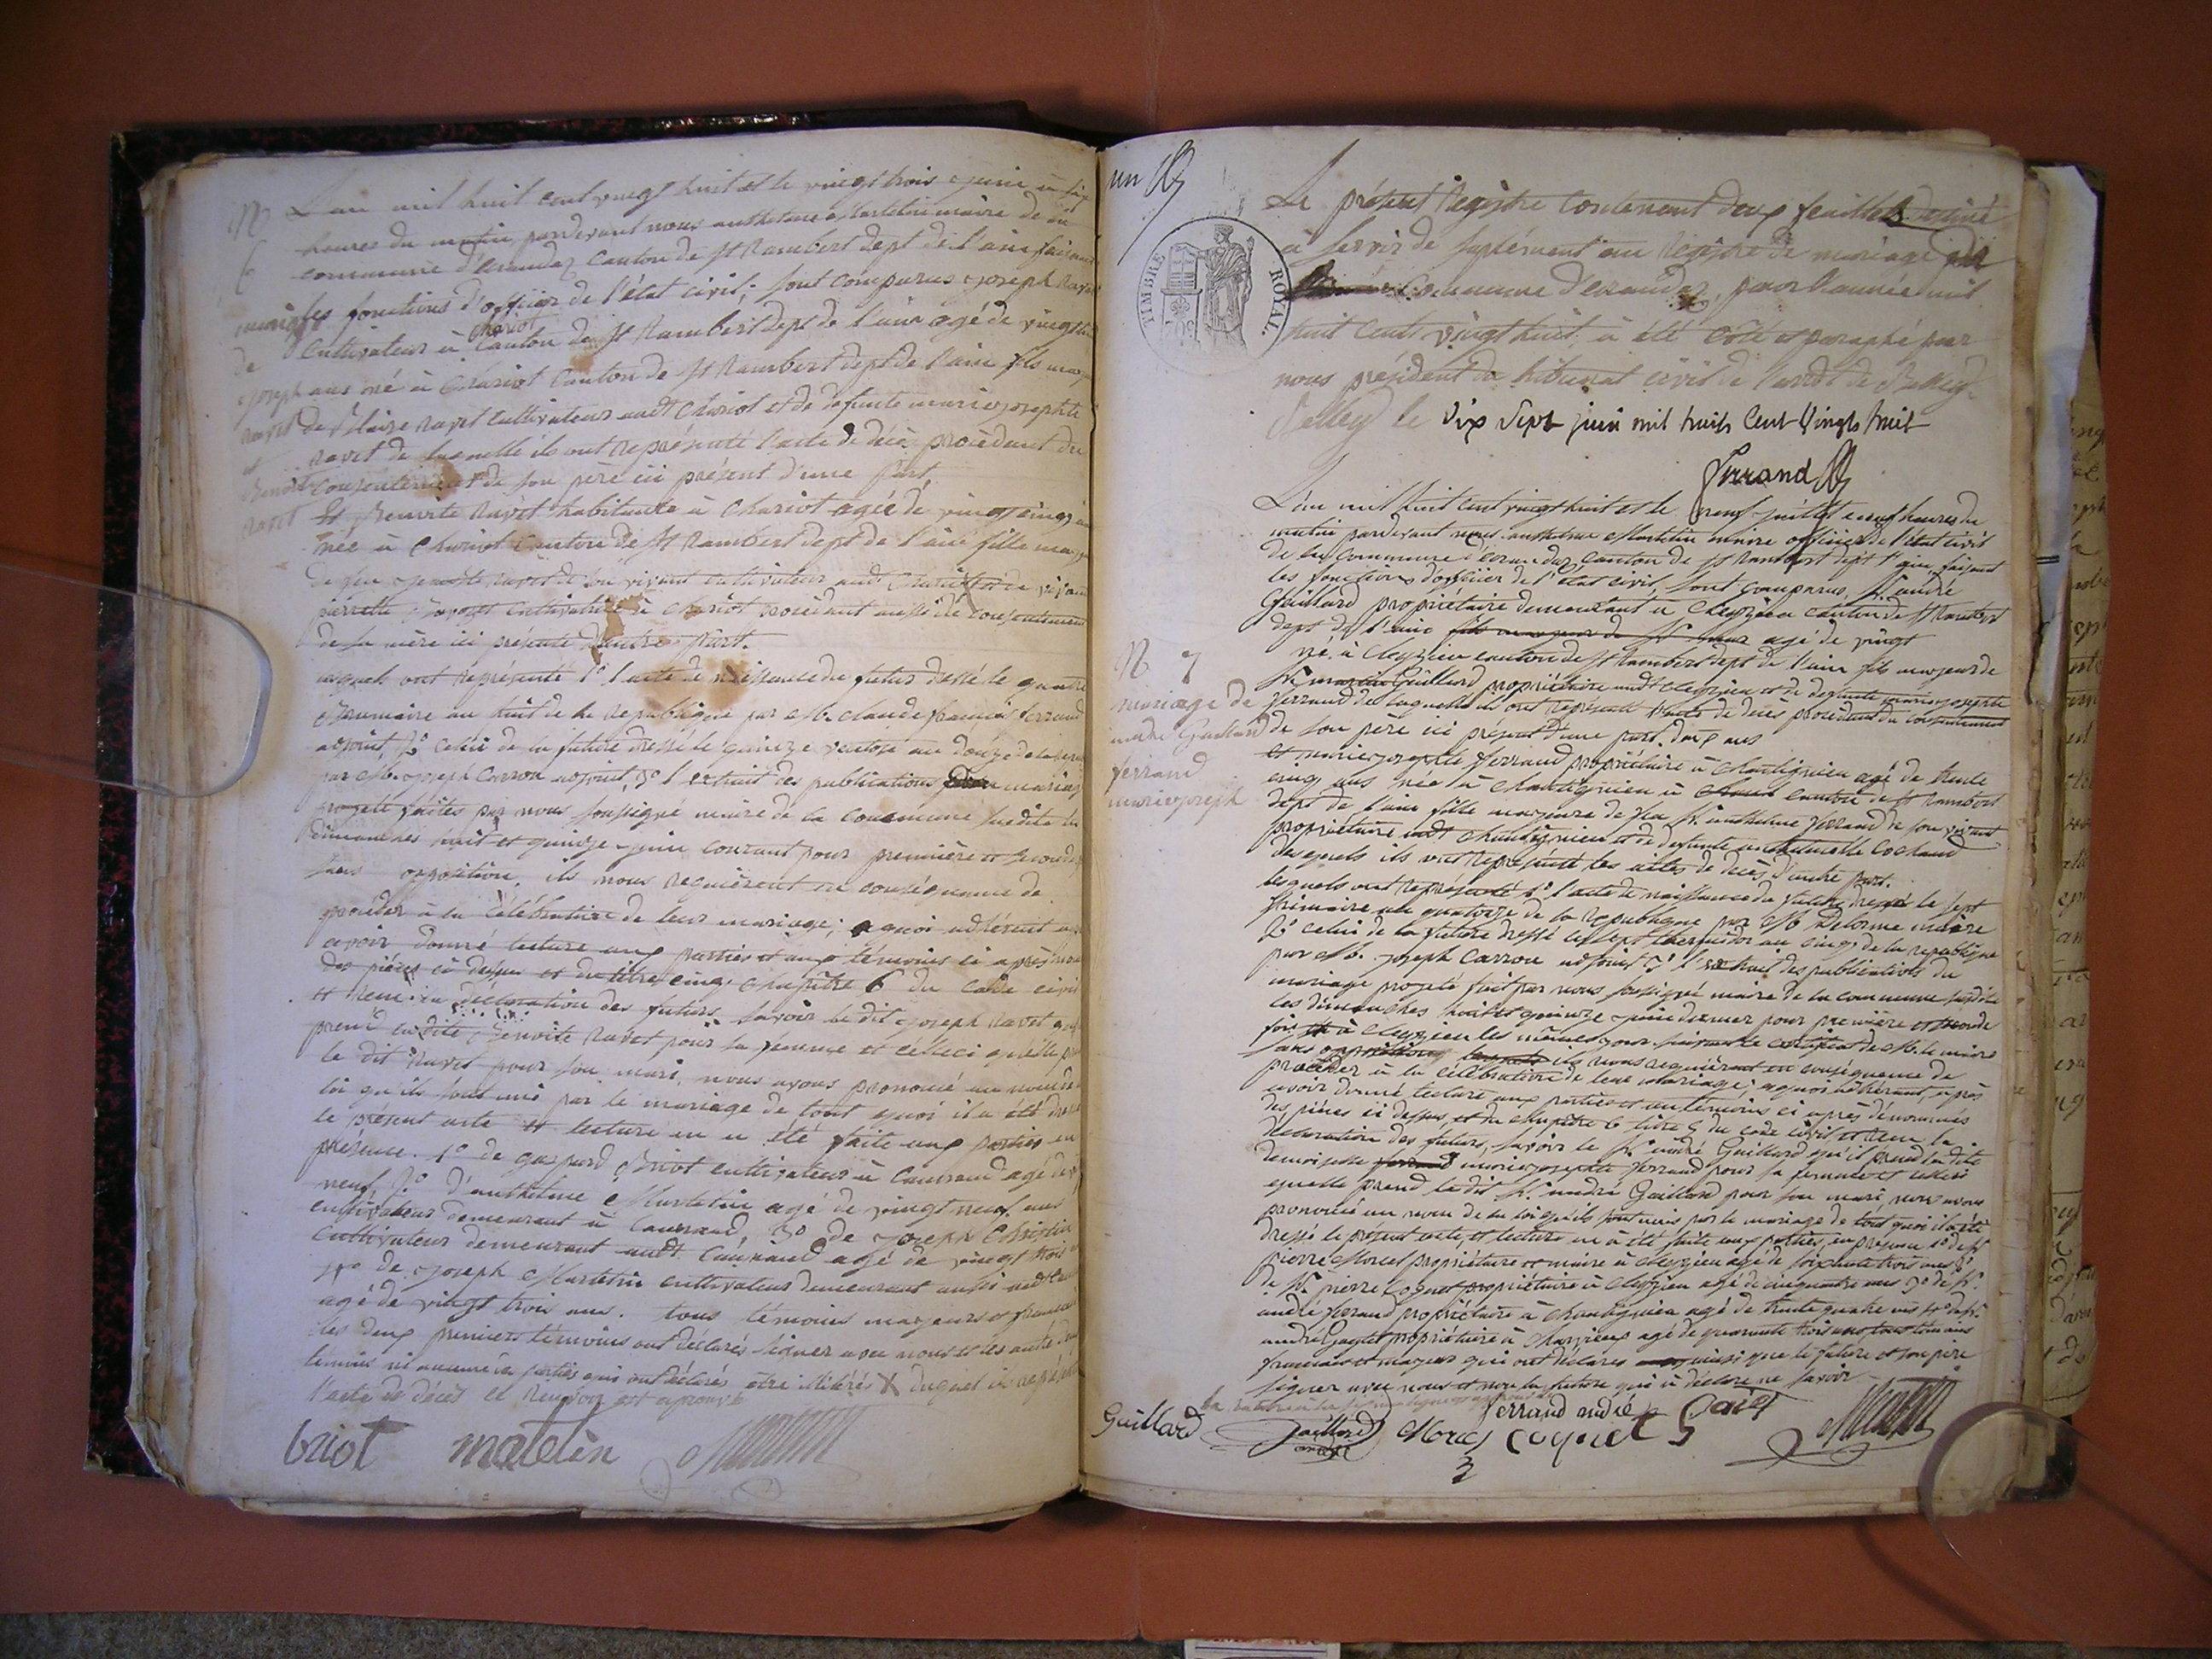 N
6
mariage
de
joseph
ravet
et
Benoite
ravet
L'an mil huit cent vingt huit et le vingt trois juin à six
heures du matin, pardevant nous anthelme Martelin maire de la
commune d'evandaz Canton de St Rambert dept de l'ain faisant
les fonctions d'officier de l'état civil; sont comparus joseph Ravet
Chariot
cultivateur à Canton de St Rambert dept de l'ain agé de vingt
ans né à Chariot Canton de St Rambert dept de l'ain fils majeur
de Blaize ravet cultivateur audt Chariot et de defunte marie josephte
ravet de laquelle ils ont représenté l'acte de décès procédant du
consentement de son père ici présent d'une part
Et Benoite Ravet habitante à Chariot agée de vingt cinq ans
née à Chariot Canton de St Rambert dept de l'ain fille majeure
de feu ravet de son vivant cultivateur audt Chariot X et de vivante
pierrette cultivatrice à Chariot procédant aussi du consentement
de sa mère ici présente d'autre part.
lesquels ont représenté 1o l'acte de naissance du futur dressé le quatre
Brumaire an huit de la republique par Mr. claude françois ferrand
adjoint, 2o celui de la future dressé le quinze ventose an douze de la
par Mr. joseph Carron adjoint, 3o l'extrait des publications du mariage
projeté faites par nous soussigné maire de la commune susdite les
dimanches huit et quinze juin courant pour première et seconde
sans opposition, ils nous requièrent en conséquence de
procéder à la célébration de leur mariage; aquoi adhérant après
avoir donné lecture aux parties et aux témoins ci après
des pièces ci dessus et du titre cinq chapitre 6 du code civil
et reçu la déclaration des futurs savoir le dit joseph Ravet qu'il
prend la dite Benoite Ravet pour sa femme et celleci qu'elle prend
le dit Ravet pour son mari, nous avons prononcé au nom de la
loi qu'ils sont unis par le mariage de tout quoi il a été dressé
le présent acte et lecture en a été faite aux parties en
présence 1o de gaspard Briot cultivateur à agé de
neuf, 2o d'anthelme Martelin agé de vingt neuf ans
cultivateur demeurant à 3o de joseph Christin
cultivateur demeurant audt agé de vingt trois
4o de joseph Martelin cultivateur demeurant aussi audt
agé de vingt trois ans. tous témoins majeurs et français
les deux premiers témoins ont déclarés signer avec nous et les autres deux
témoins ni aucune des parties qui ont déclarés être illitérés X duquel ils ont représenté
l'acte de décès ce renvoi est aprouvé
briot martelin Martelin
un
TIMBRE ROYAL.
70c
Le présent Registre contenant deux feuillets destiné
à servir de suplément au Registre de mariage de
la Commune d'evandaz, pour l'année mil
huit cent vingt huit, à été coté et paraphé par
nous président du tribunal civil de l'arrdt de Belley
Belley le dix sept juin mil huit Cent Vingt huit
Ferrand
N 7
mariage de
andré Guillard
ferrand
marie joseph
L'an mil huit cent vingt huit et le neuf juillet à neuf heures du
matin pardevant nous anthelme Martelin maire officier de l'état civil
de la commune d'evandaz, canton de St Rambert dept l'ain, faisant
les fonctions d'officier de l'état civil, sont comparus, Sr. andré
Guillard propriétaire demeurant à Cleyzieu canton de St Rambert
dept de l'ain agé de vingt
né à Cleyzieu canton de St Rambert dept de l'ain fils majeur de
Sr martin Guillard propriétaire audt Cleyzieu et de defunte marie josephte
ferrand de laquelle ils ont représenté l'acte de décès procédant du consentement
de son père ici présent d'une part. deux ans
et marie josephte ferrand propriétaire à Chantignieu agé de trente
cinq ans née à Chantignieu canton de St Rambert
dept de l'ain fille majeure de feu Sr. anthelme ferrand de son vivant
propriétaire audt Chantignieu et de defunte anthelmette Cochand
desquels ils ont représenté les actes de décès d'autre part.
lesquels ont représenté 1o l'acte de naissance du futur dressé le sept
frimaire an quatorze de la republique par Mr Delorme maire
2o celui de la future dressé le sept thermidor an cinq de la republique
par Mr. joseph Carron adjoint 3o l'extrait des publications du
mariage projeté fait par nous soussigné maire de la commune susdite
les dimanches huit et quinze juin dernier pour première et seconde
fois et à Cleyzieu les mêmes jours suivant le certificat de Mr. le maire
sans opposition ils nous requièrent en conséquence de
procéder à la célébration de leur mariage; aquoi adhérant, après
avoir donné lecture aux parties et aux témoins ci après dénommés
des pièces ci dessus, et du chapitre 6 titre 5 du code civil et reçu la
déclaration des futurs, savoir le Sr. andré Guillard qu'il prend la dite
demoiselle marie josephte ferrand pour sa femme et celleci
quelle prend le dit Sr. andré Guillard pour son mari, nous avons
prononcé au nom de la loi qu'ils sont unis par le mariage de tout quoi il a été
dressé le présent acte, et lecture en a été faite aux parties, en présence 1o de Sr
pierre Morel propriétaire et maire à Cleyzieu agé de soixante trois ans 2o
de Sr. pierre Coquet propriétaire à Cleyzieu agé de cinquante ans 3o de Sr.
andré ferrand propriétaire à Chantignieu agé de trente quatre ans 4o de Sr.
andré propriétaire à agé de quarante trois ans tous témoins
français et majeurs qui ont déclarés ainsi que le future et son père
signer avec nous et non la future qui à déclaré ne savoir
Guillard Guillard andré Morel ferrand andré coquet Martelin